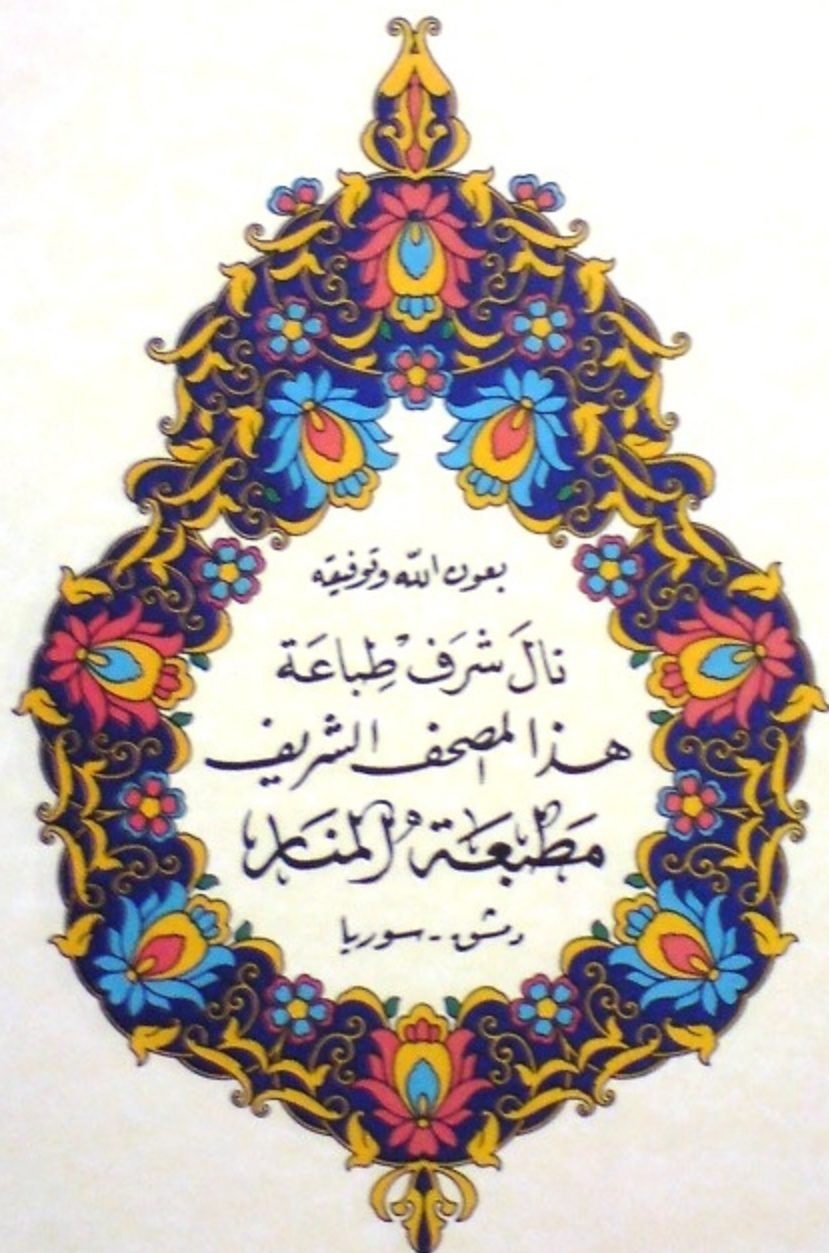 بعون الله وتوفيقه
نالَ شرَف طِباعَة
هذا المصحف الشريف
مَطبَعَة المنَار
دمشق - سوريا